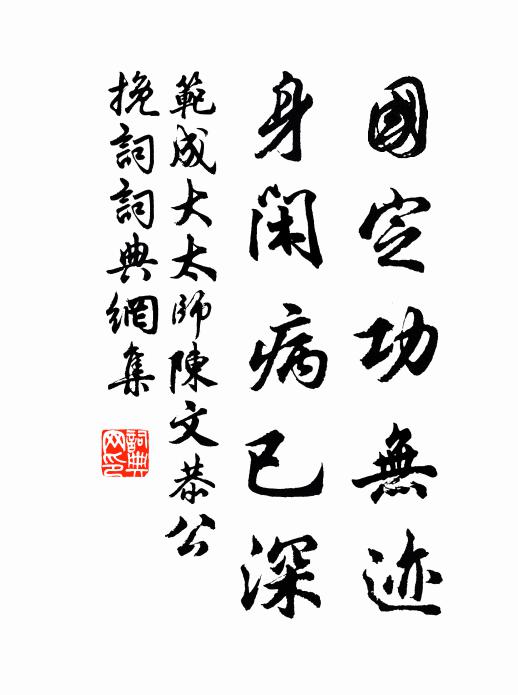 國定功無迹
身閑病已深
範成大太師陳文恭公
挽詞詞典網集
詞典網印